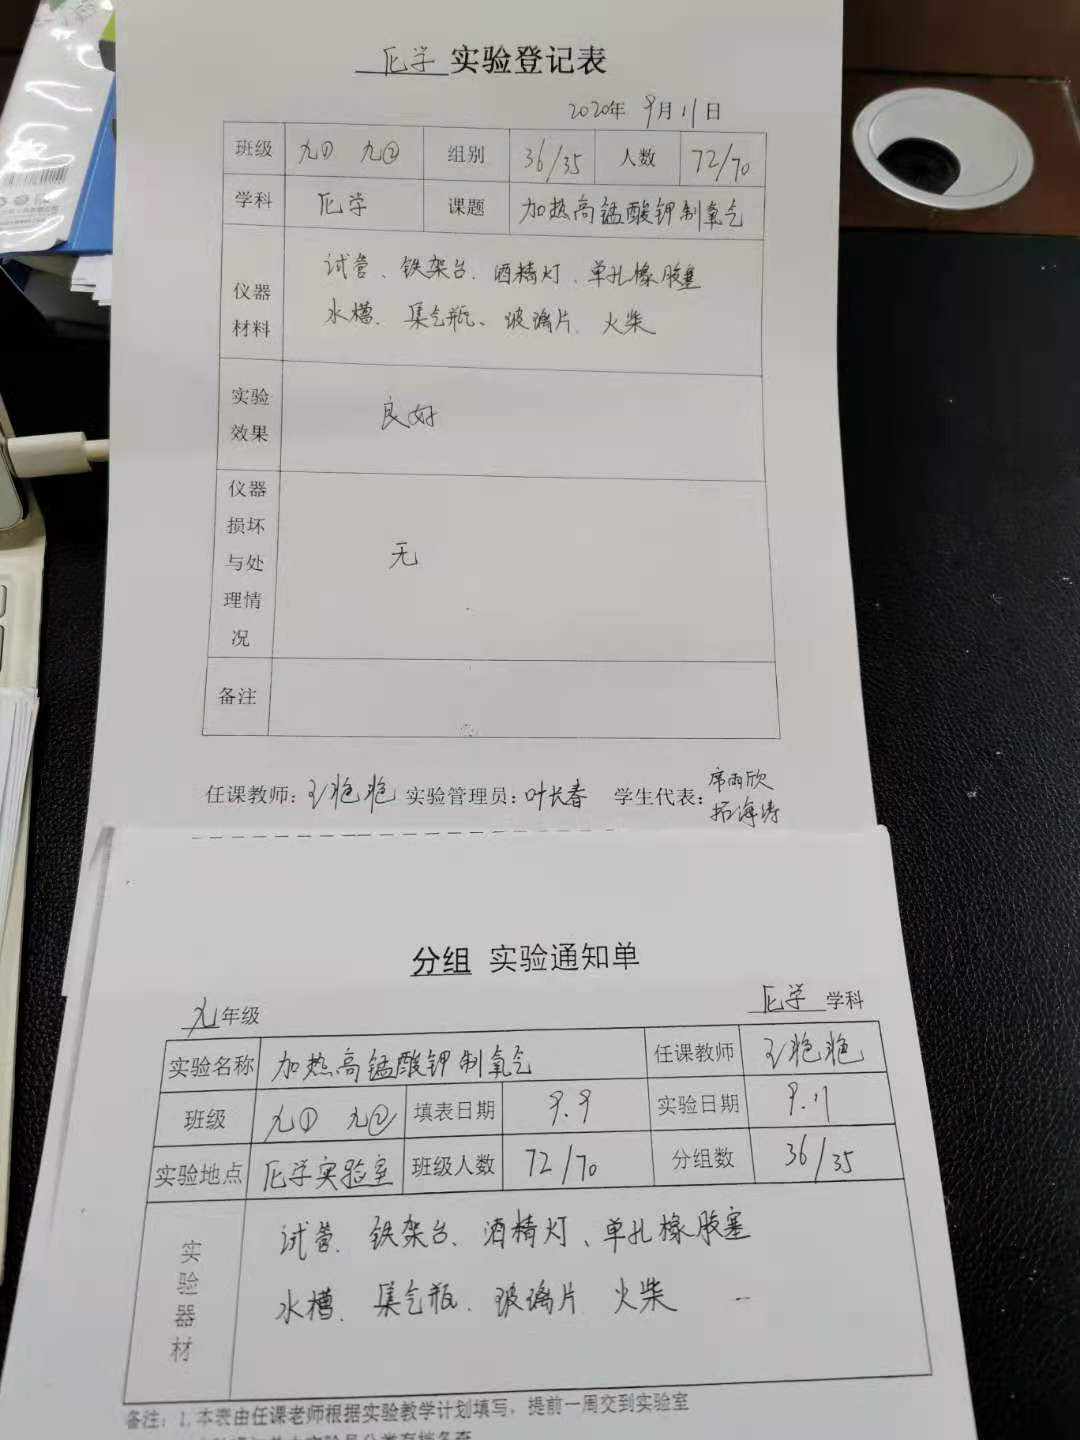 化学 实验登记表
2020年 9月 11日
班级 九① 九② 组别 36/35 人数 72/70
学科 化学 课题 加热高锰酸钾制氧气
仪器材料 试管、铁架台、酒精灯、单孔橡胶塞
水槽、集气瓶、玻璃片、火柴
实验效果 良好
仪器损坏与处理情况 无
备注
任课教师：王艳艳 实验管理员：叶长春 学生代表：席雨欣
拓海涛
分组 实验通知单
九年级 化学 学科
实验名称 加热高锰酸钾制氧气 任课教师 王艳艳
班级 九① 九② 填表日期 9.9 实验日期 9.11
实验地点 化学实验室 班级人数 72/70 分组数 36/35
实验器材 试管、铁架台、酒精灯、单孔橡胶塞
水槽、集气瓶、玻璃片、火柴
备注：1.本表由任课老师根据实验教学计划填写，提前一周交到实验室